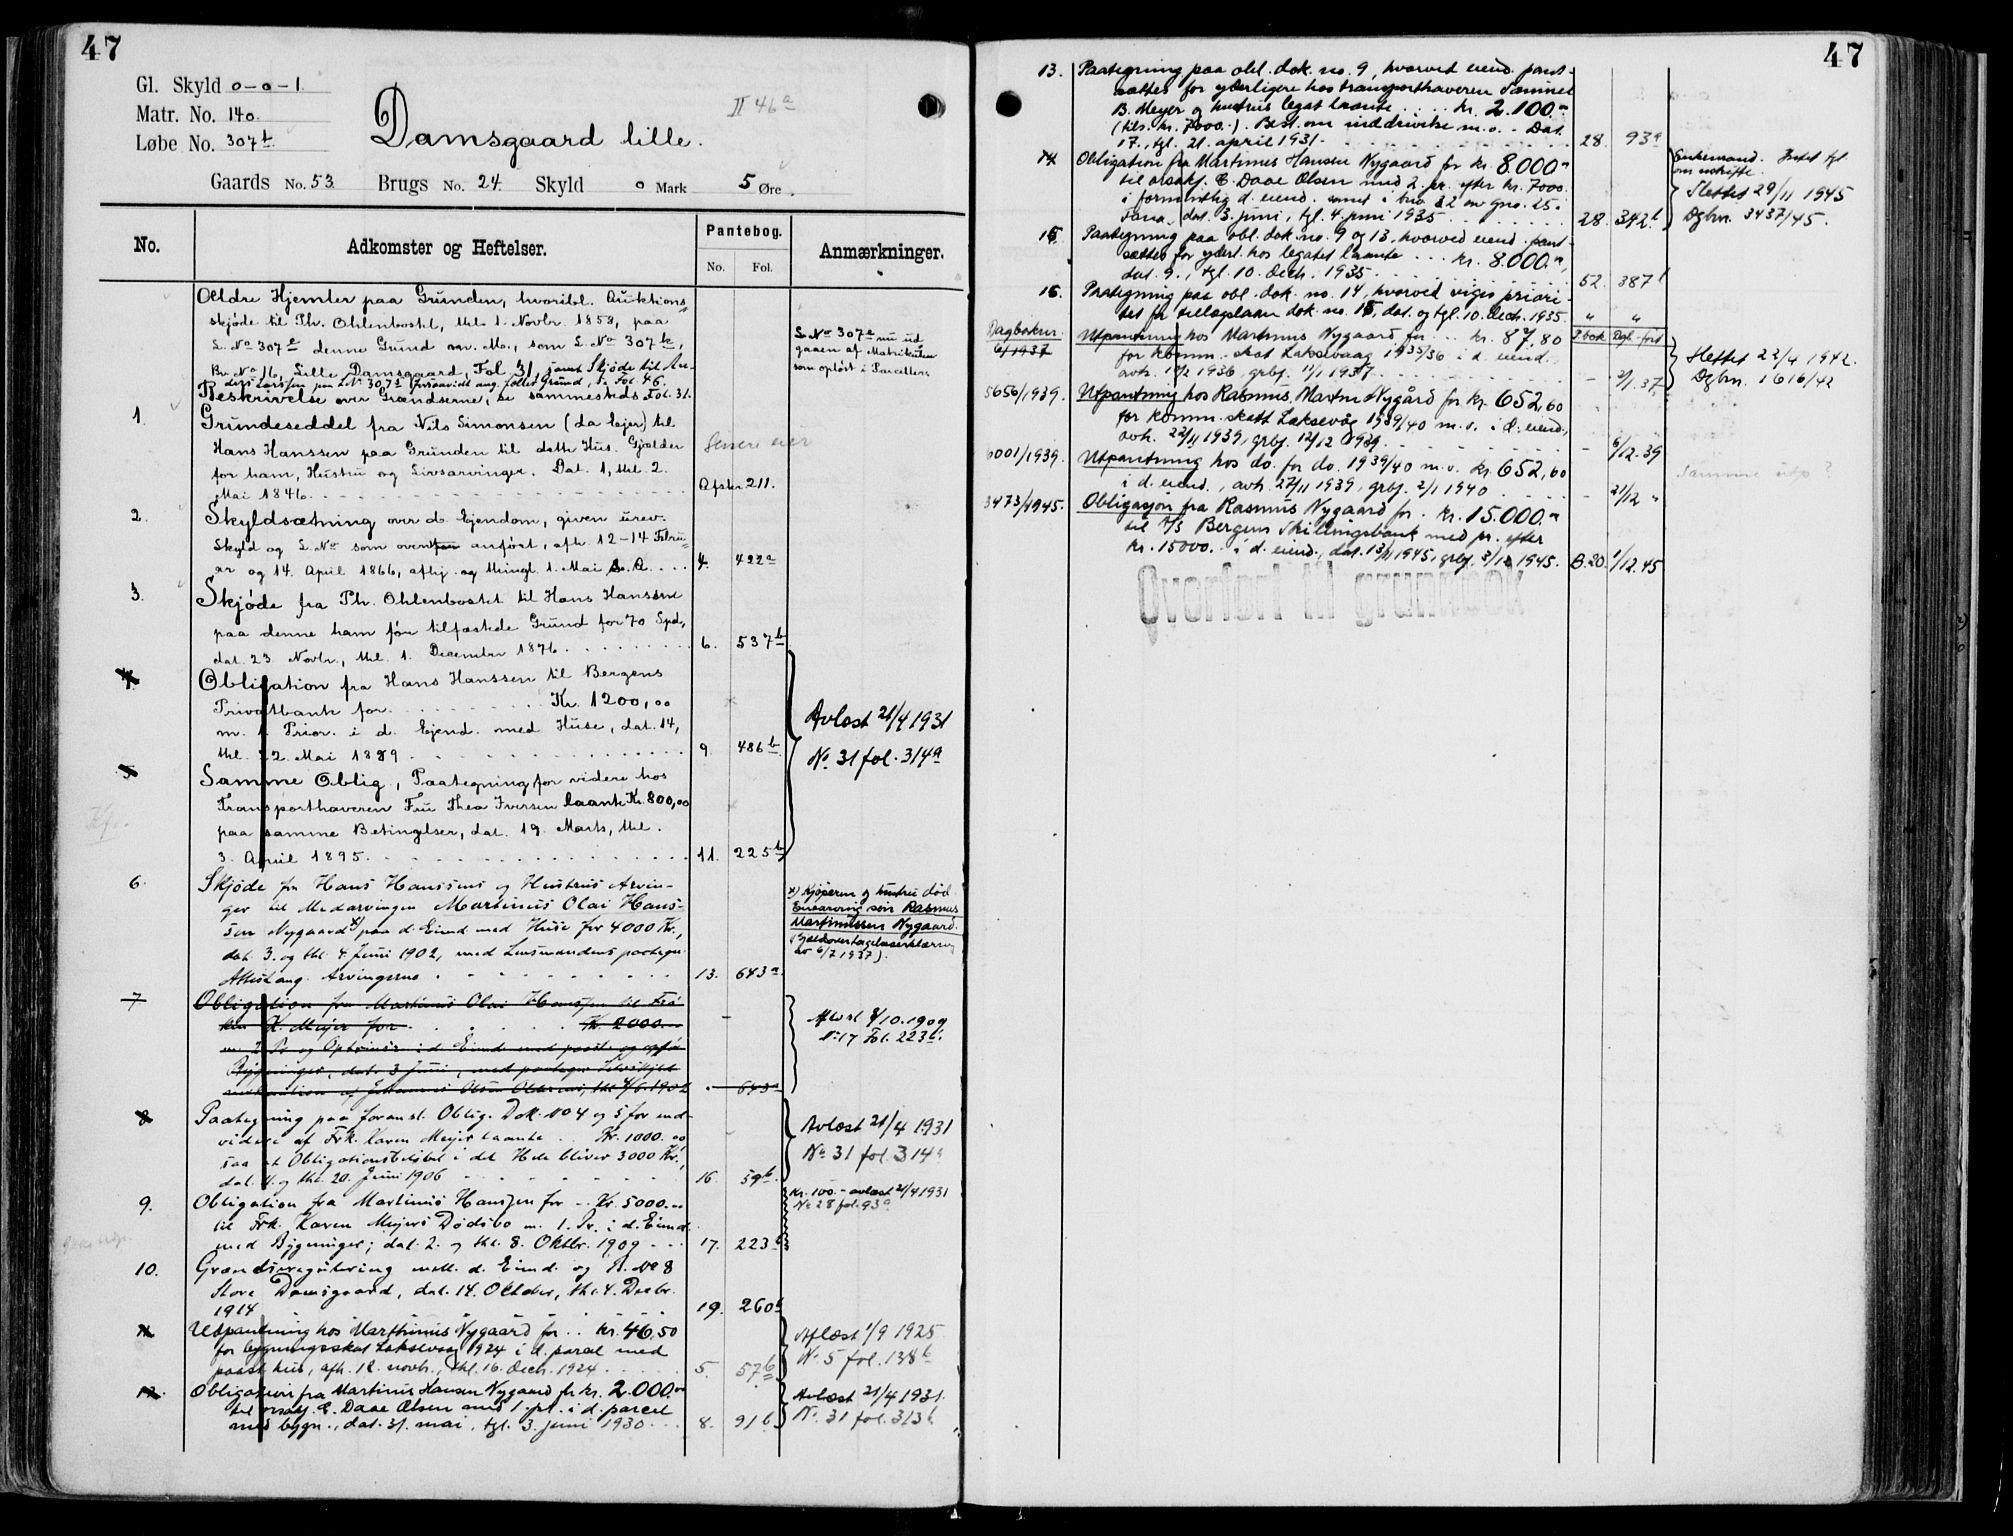 47
Gl. Skyld 0-0-1
Matr. No. 140
Løbe No. 307t
II 46a
Damsgaard lille.
Gaards No. 53 Brugs No. 24. Skyld 0 Mark 5 Øre.
No. Adkomster og Heftelser. Pantebog. Anmærkninger.
No. Fol.
Ældre Hjemler paa Grunden, hvoribl. Auktions
skjøde til Ph. Ohlenbostel, thl. 1. Novbr. 1858, paa
L. No 307e denne Grund m. M., som L. No 307
Br. No 16, Lille Damsgaard, Fol 31, samt Skjøde til An-
ders Larssen paa LNo 307 forsaavidt ang. fælles Grund, se Fol. 46.
Beskrivelse over Grændserne, se sammesteds Fol. 31.
L. No 307e nu ud
gaaen af Matrikulen
som opløst i Parceller.
1 Grundeseddel fra Nils Simonsen (da Eier) til
Hans Hanssen paa Grunden til dette Hus. Gjælder
for ham, Hustru og Livsarvinger. Dat. 1, thl. 2.
Mai 1846. Afskr. 211.
Senere eier
2. Skyldsætning over d. Ejendom, given urev.
Skyld og L. No som ovenfor anført, afh. 12-14 Febru-
ar og 14. April 1866, afhj. og thingl. 1. Mai s. A. 4. 422a
3. Skjøde fra Ph. Ohlenbostel til Hans Hanssen
paa denne ham før tilfæstede Grund for 70 Spd.,
dat. 23 Novbr., thl. 1. December 1876. 6. 537b
4. Obligation fra Hans Hanssen til Bergens
Privatbank for Kr. 1200,00
m. 1 Prior. i d. Ejend. med Huse, dat. 14,
thl. 22. Mai 1889. 9. 486b
Avlæst 21/4 1931
No. 31 fol. 314a
5 Samme Oblig., Paategning for videre hos
Transporthaveren Fru Thea Iversen laante Kr. 800,00
paa samme Betingelser, dat. 19. Marts, thl.
3. April 1895. 11. 225b
6. Skjøde fra Hans Hanssens og Hustrus Arvin-
ger til Medarvingen Martinus Olai Hans-
sen Nygaard x) paa d. Eiend med Huse for 4000 Kr.,
dat. 3. og thl. 4. Juni 1902, med Lensmandens paategn.
Attest ang. Arvingerne 13. 643a
x) Kjøperen og hustru død.
Enearving søn Rasmus
Martinussen Nygaard.
(Gjældsovertagelseserklæring
av 6/7 1937).
7 Obligation fra Martinus Olai Hanssen til Frø-
ken K. Meyer for Kr. 2000.
m. 2 Pr og Optrinsr. i d. Eiend med paast. og opfø.
Bygninger, dat. 3 Juni, med paategn
643a
Aflæst 8/10.1909
No 17 Fol. 223b.
8 Paategning paa foranst. Oblig. Dok. No 4 og 5 for end-
videre af Frk. Karen Meyer laante Kr. 1000.00
saa at Obligationsbeløbet i det Hele bliver 3000 Kr.,
dat. og thl. 20. Juni 1906 16. 59b.
Avlæst 21/4 1931
No 31 fol. 314a
9. Obligation fra Martinus Hanssen for Kr. 5000.00
til Frk. Karen Meyers Dødsbo m. 1. Pr. i d. Eiend
med Bygninger; dat. 2. og thl. 8. Oktbr. 1909 17. 223b
Kr. 100.- avlæst 21/4 1931
No 28 fol. 93a
10. Grændseregulering mell. d. Eiend. og B. No 8
Store Damsgaard, dat. 14. Oktober, thl. 4. Decbr.
1914 19. 260b
11 Utpantning hos Marthinus Nygaard for Kr. 46,50
for bygningsskat Laksevaag 1924 i d. parcel med
paast. hus, afh. 12. novbr., thl. 16. Decb. 1924. 5. 57b
Aflæst 1/9 1925
No 5 fol. 138b
12. Obligation fra Martinus Hansen Nygaard for kr. 2.000.00
til orsakf. E. Daae Olsen med 1. pr. i d. parcel
med bygn., dat. 31. mai, tgl. 3. juni 1930 8. 91b
Avlæst 21/4 1931
No. 31 fol. 313b
47
13. Paategning paa obl. dok. no. 9, hvorved eiend. pant-
sættes for yderligere hos transporthaveren Sammel
B. Meyer og hustrus legat laante kr. 2.100.00
(tils. kr. 7000.-). Best. om inddrivelse m.v. - Dat.
17., tgl. 21. april 1931. 28. 93a
14 Obligation fra Martinus Hansen Nygaard for kr. 8.000.00
til orsakf. E. Daae Olsen med 2. pr. efter kr. 7000.
i forn. d. eiend. samt i bno 32 av gno. 25 i
Fana, dat. 3. juni, tgl. 4. juni 1935 28. 342b
Enkemand. Intet tgl.
om uskifte.
Slettet 29/11 1945
Dgbn. 3437/45.
15. Paategning paa obl. dok. no. 9 og 13, hvorved eiend. pant-
sættes for yderl. hos legatet laante kr. 8.000.00,
dat. 9., tgl. 10. decb. 1935. 52. 387b
16. Paategning paa obl. dok. no. 14, hvorved viges priori-
tet for tillægslaan dok. no. 15, dat. og tgl. 10. decb. 1935. " "
Dagboknr. P.bok Dgl.-ført
6/1937 Utpantning hos Martinus Nygaard for kr. 87,80
for komm. skat Laksevaag 1935/36 i d. eiend.,
avh. 1936, grbf. 11/1 1937. 37.
Slettet 22/4 1942.
Dgbn. 1616/42
5656/1939. Utpantning hos Rasmus Martin Nygård for kr. 652,60
for komm. skatt Laksevåg 1939/40 m.v. i d. eiend.,
avh. 22/11 1939, grbf. 12/12 1939. 6/12.39
6001/1939. Utpantning hos do. for do. 1939/40 m.v. kr. 652,60
i d. eiend., avh. 27/11 1939, grbf. 2/1 1940 21/12 "
Samme utp?
3473/1945. Obligasjon fra Rasmus Nygaard for kr. 15.000.00
til A/S Bergens Skillingsbank med pr. efter
kr. 15000. i d. eiend., dat. 13/11 1945, grbf. 3/12 1945. B.20. 1/12.45
Overført til grunnbok